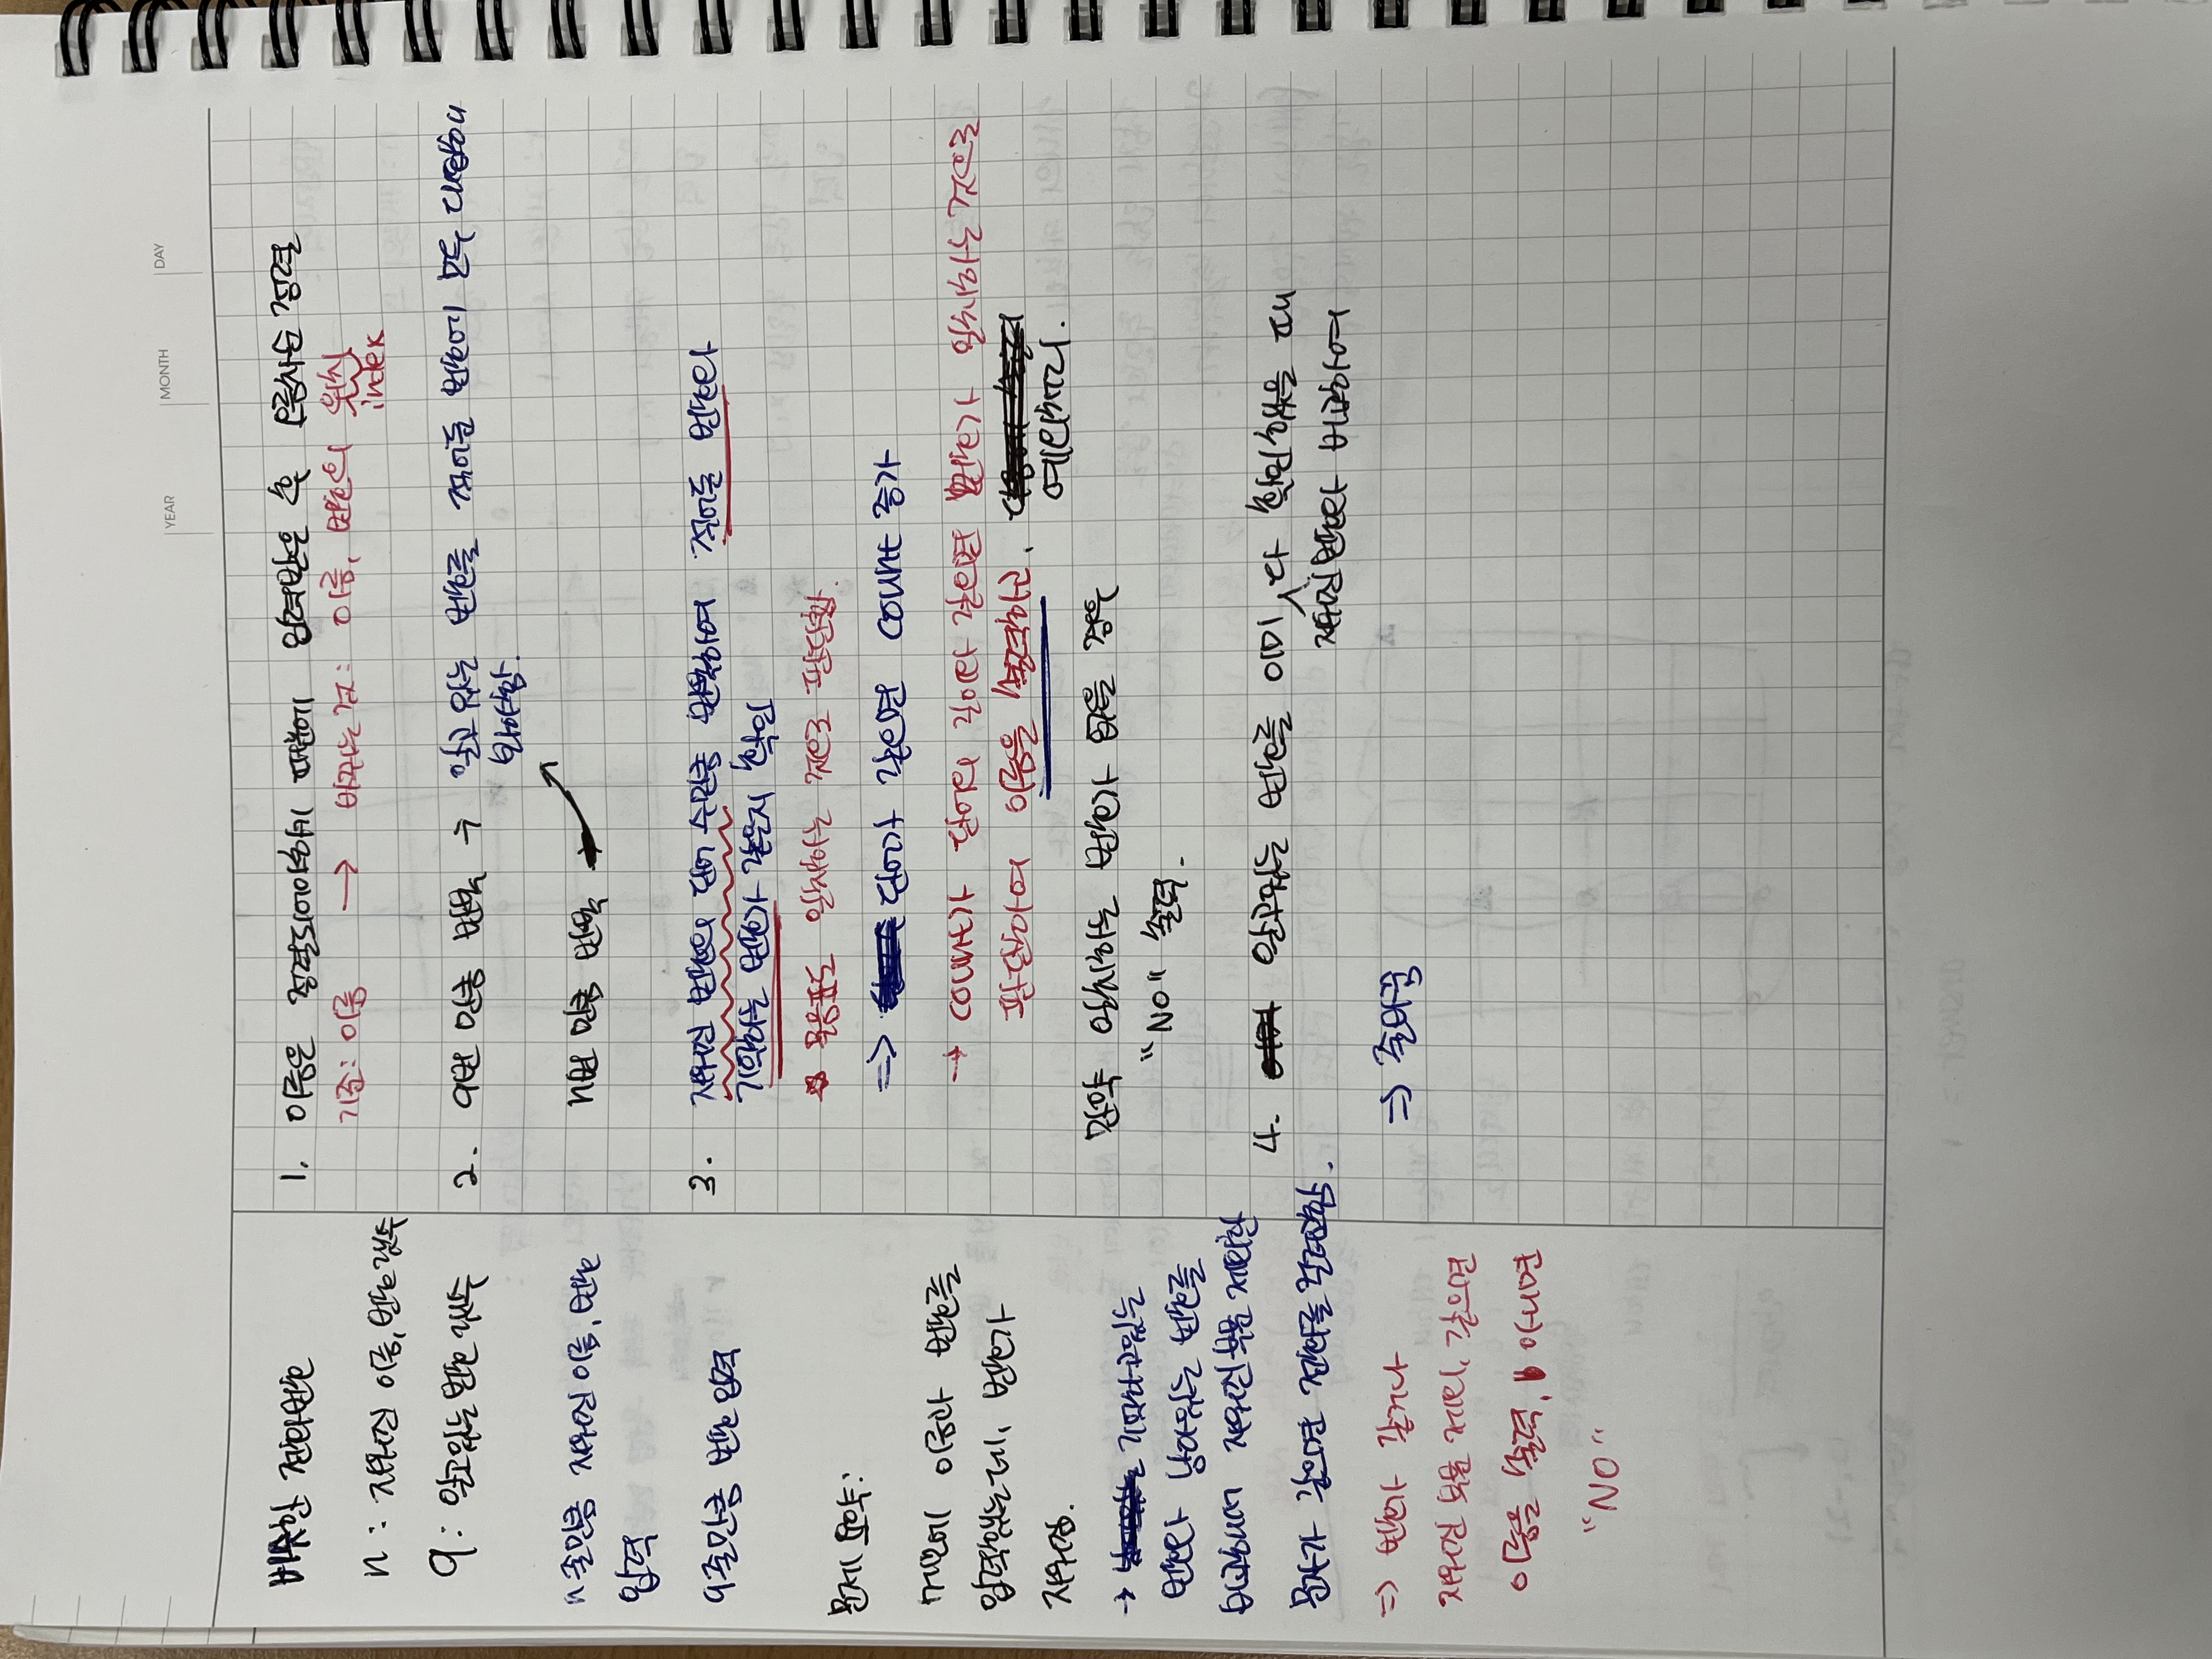 YEAR MONTH DAY
비슷한 전화번호
n : 지워진 이름, 번호 갯수
q : 알고있는 번호 갯수
n줄만큼 지워진 이름, 번호
입력
q줄만큼 번호 입력
문제 요약:
메모에 이름과 번호를
입력했는데, 번호가
지워짐.
→ 기억하고있는
번호와 남아있는 번호를
비교해서 지워진 부분 제외한
문자가 같으면 전화를 걸려고함.
=> 번호가 같거나
지워진 부분 제외, 같으면
이름을 출력, 아니면
"NO"
1. 이름은 정렬되어야하기 때문에 입력받은 후 오름차순 정렬
기준: 이름 → 바꾸는 것: 이름, 번호의 위치
index
2. q번 만큼 반복 → 알고 있는 번호를 적어둔 번호에 모두 대입해
봐야함.
n번 만큼 반복 →
3. 지워진 번호의 단어 수만큼 반복하여 적어둔 번호와
기억하는 번호가 같은지 확인
물음표도 일치하는 것으로 판단함.
=> 단어가 같으면 count 증가
→ count가 단어의 길이와 같으면 번호가 일치하는 것으로
판단하여 이름을 출력하고,
예외처리.
만약 일치하는 번호가 없을 경우
"NO" 출력.
4. 알고있는 번호를 이미 다 확인했을 때
지워진 번호와 비교하여
=> 줄바꿈